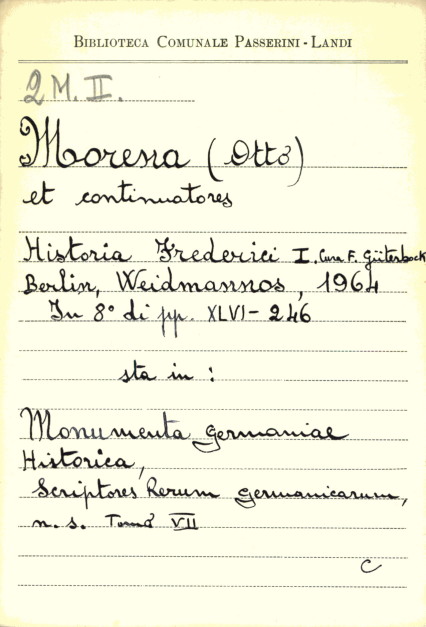 BIBLIOTECA COMUNALE PASSERINI-LANDI
2 M. II.
Morena (Otto)
et continuatores
Historia Frederici I. Cura F. Güterbock
Berlin, Weidmannos, 1964
In 8° di pp. XLVI-246
sta in :
Monumenta Germaniae
Historica,
Scriptores Rerum Germanicarum,
n. s. Tomo VII
C